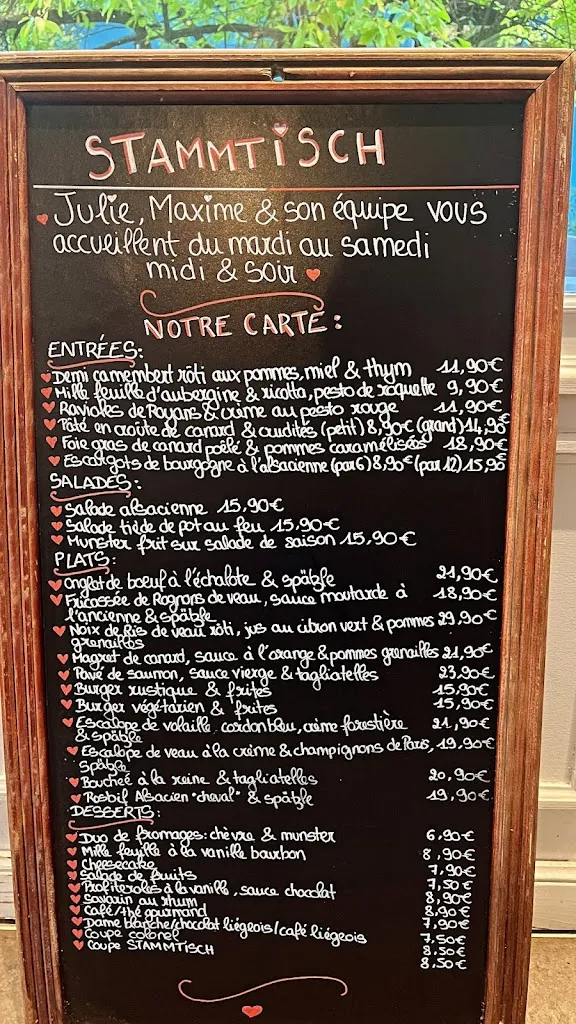 STAMMTISCH
Julie, Maxime & son équipe vous
accueillent du mardi au samedi
midi & soir
NOTRE CARTE :
ENTRÉES :
Demi camembert rôti aux pommes, miel & thym 11,90€
Mille feuille d'aubergine & ricotta, pesto de roquette 9,90€
Ravioles de Royans & crème au pesto rouge 11,90€
Pâté en croûte de canard & crudités (petit) 8,90€ (grand) 14,90€
Foie gras de canard poêlé & pommes caramélisées 18,90€
Escargots de bourgogne à l'alsacienne (par 6) 8,90€ (par 12) 15,90€
SALADES :
Salade alsacienne 15,90€
Salade tiède de pot au feu 15,90€
Munster frit sur salade de saison 15,90€
PLATS :
Onglet de boeuf à l'échalote & spätzle 21,90€
Fricassée de Rognons de veau, sauce moutarde à 18,90€
l'ancienne & spätzle
Noix de Ris de veau rôti, jus au citron vert & pommes 29,90€
grenailles
Magret de canard, sauce à l'orange & pommes grenailles 21,90€
Pavé de saumon, sauce vierge & tagliatelles 23,90€
Burger rustique & frites 15,90€
Burger végétarien & frites 15,90€
Escalope de volaille cordon bleu, crème forestière 21,90€
& spätzle
Escalope de veau à la crème & champignons de Paris, 19,90€
spätzle
Bouchée à la reine & tagliatelles 20,90€
Rosbif Alsacien "cheval" & spätzle 19,90€
DESSERTS :
Duo de fromages : chèvre & munster 6,90€
Mille feuille à la vanille bourbon 8,90€
Cheesecake 7,90€
Salade de fruits 7,50€
Profiteroles à la vanille, sauce chocolat 8,90€
Savarin au rhum 8,90€
Café/thé gourmand 7,90€
Dame blanche/chocolat liégeois/café liégeois 7,50€
Coupe colonel 8,50€
Coupe STAMMTISCH 8,50€